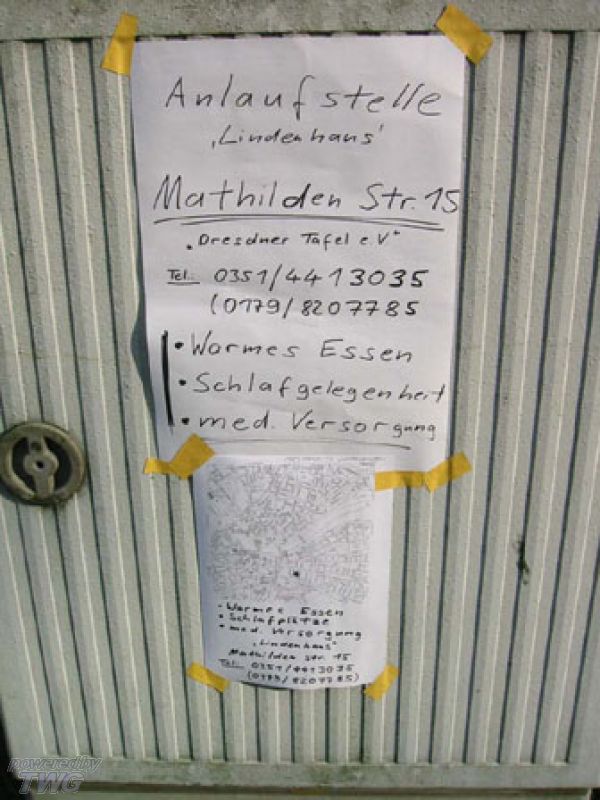 Anlaufstelle
‚Lindenhaus'
Mathilden Str. 15
„Dresdner Tafel e.V"
Tel.: 0351/4413035
(0179/8207785
• Warmes Essen
• Schlafgelegenheit
• med. Versorgung
• Warmes Essen
• Schlafplätze
• med. Versorgung
‚Lindenhaus'
Mathilden Str. 15
Tel.: 0351/4413035
(0179/8207785)
powered by
TWG